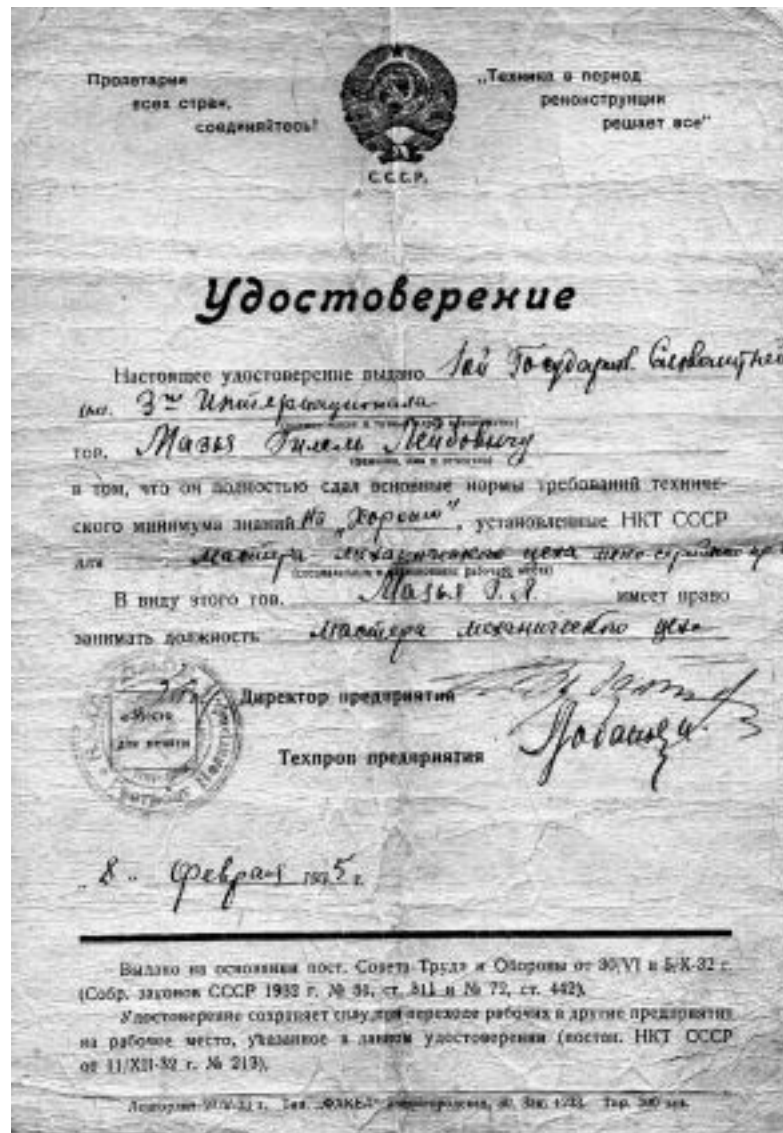 Пролетарии
всех стран,
соединяйтесь!
„Техника в период
реконструкции
решает все"
С.С.С.Р.
Удостоверение
Настоящее удостоверение выдано 1ой Государств.
им. 3го Интернационала
тов. Мазья Гилель Лейбовичу
(фамилия, имя и отчество)
в том, что он полностью сдал основные нормы требований техниче-
ского минимума знаний на „Хорошо", установленные НКТ СССР
для мастера механического цеха
В виду этого тов. Мазья Г. Л. имеет право
занимать должность мастера механического цеха
Место
для печати
Директор предприятия
Техпроп предприятия
„8" Февраля 1935 г.
Выдано на основании пост. Совета Труда и Обороны от 30/VI и 5/X-32 г.
(Собр. законов СССР 1932 г. № 51, ст. 311 и № 72, ст. 442).
Удостоверение сохраняет силу при переходе рабочих в другие предприятия
на рабочее место, указанное в данном удостоверении (постан. НКТ СССР
от 11/XII-32 г. № 213).
Тип. „ФАКЕЛ"